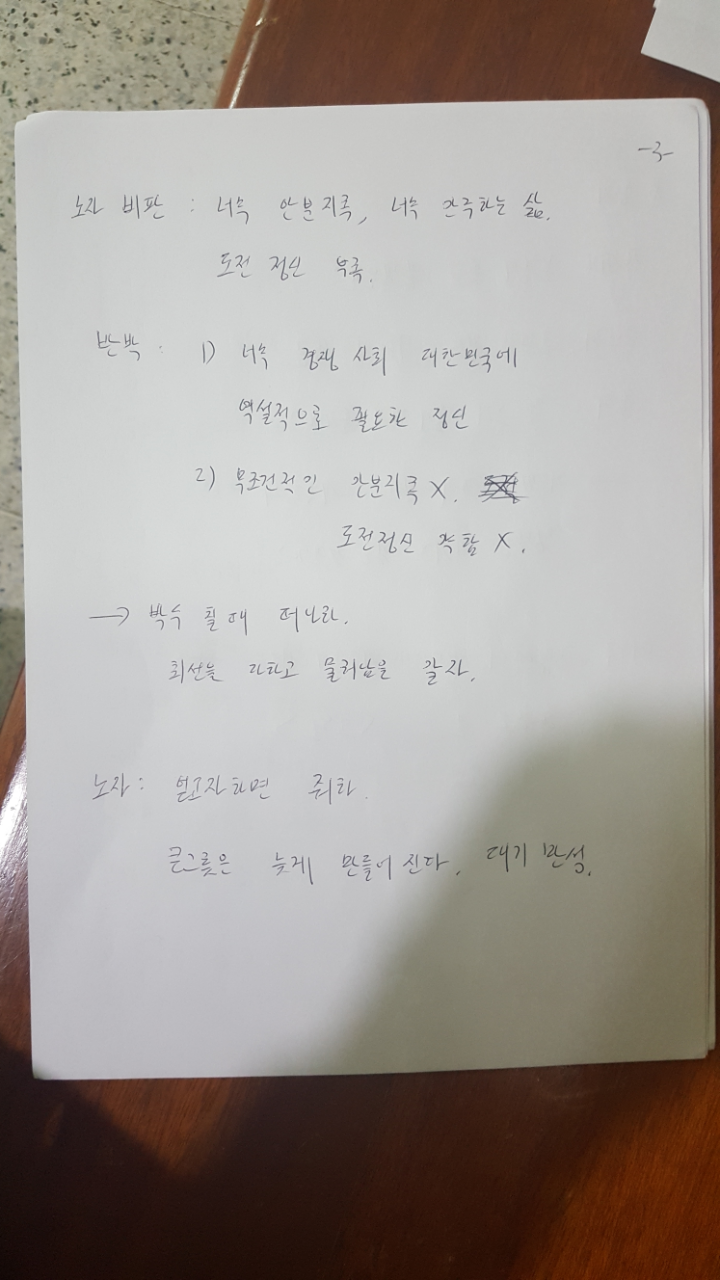 -3-
노자 비판 : 너무 안분지족, 너무 안주하는 삶.
도전 정신 부족.
반박 : 1) 너무 경쟁 사회 대한민국에
역설적으로 필요한 정신
2) 무조건적인 안분지족 X.
도전정신 부족함 X.
→ 박수 칠 때 떠나라.
최선을 다하고 물러남을 알자.
노자 : 얻고자하면 줘라.
큰그릇은 늦게 만들어 진다. 대기 만성.